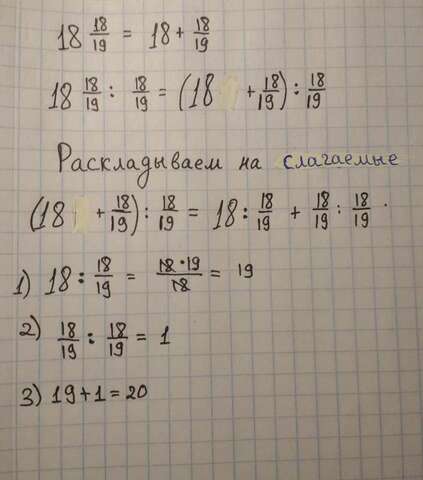 18 18/19 = 18 + 18/19
18 18/19 : 18/19 = (18 + 18/19) : 18/19
Раскладываем на слагаемые
(18 + 18/19) : 18/19 = 18 : 18/19 + 18/19 : 18/19 .
1) 18 : 18/19 = 18 · 19/18 = 19
2) 18/19 : 18/19 = 1
3) 19 + 1 = 20